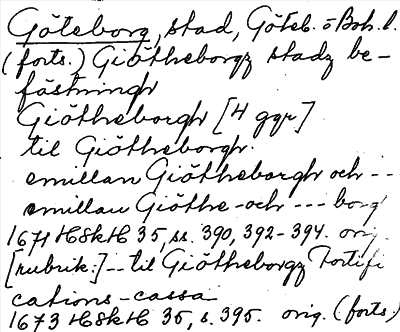 Göteborg, stad, Göteb. o Boh. l.
(forts.) Giötheborgz stadz be-
fästningh
Giötheborgh [4 ggr]
til Giötheborgh.
emillan Giötheborgh och ---
emillan Giöthe-och --- borg
1671 HSkH 35, ss. 390, 392-394. orig.
[rubrik:] -- til Giötheborgz Fortifi
cations-cassa
1673 HSkH 35, s. 395. orig. (forts.)